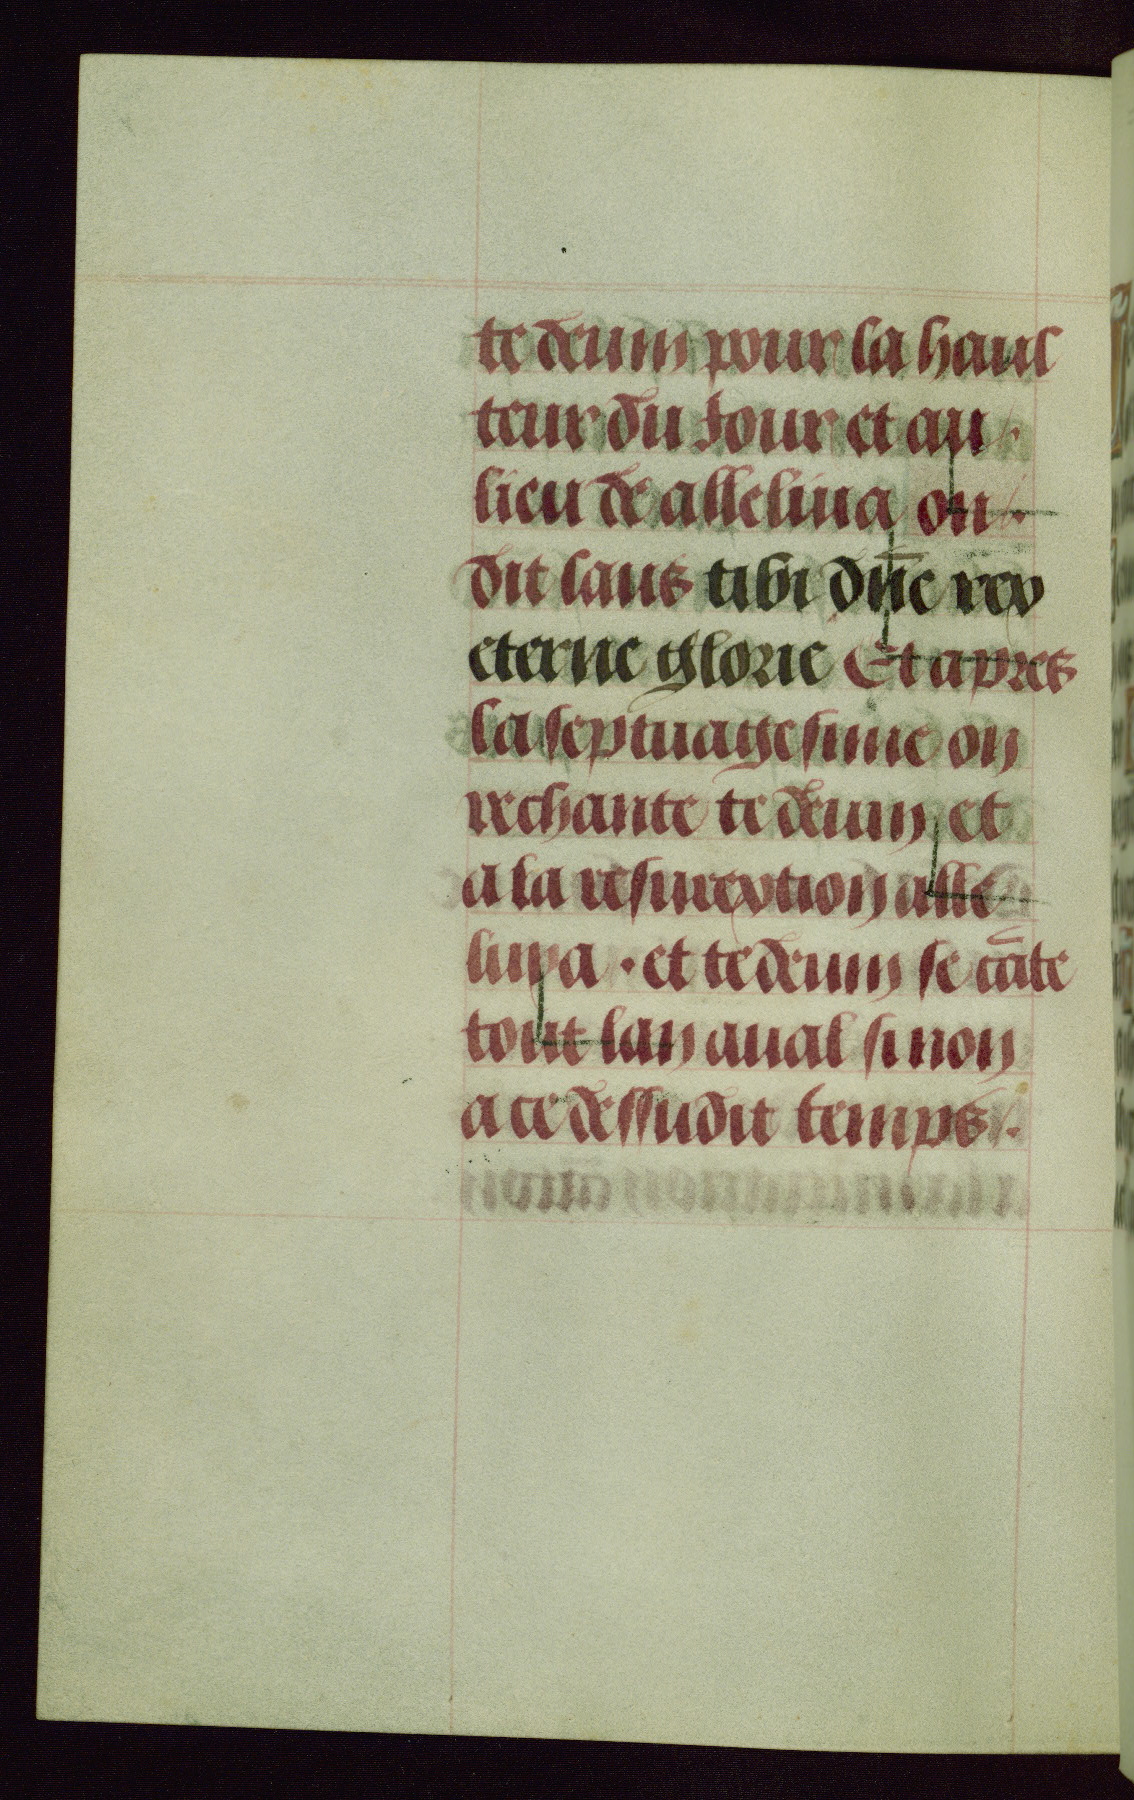 te deum pour la haul
teur du Iour et au
lieu de alleluia on
dit laus tibi dn̄e rex
eterne glorie Et apres
la septuagesime on
rechante te deum et
a la resurrextion alle
luya · et te deum se cāte
tout lan aual sinon
a ce dessudit temps ·